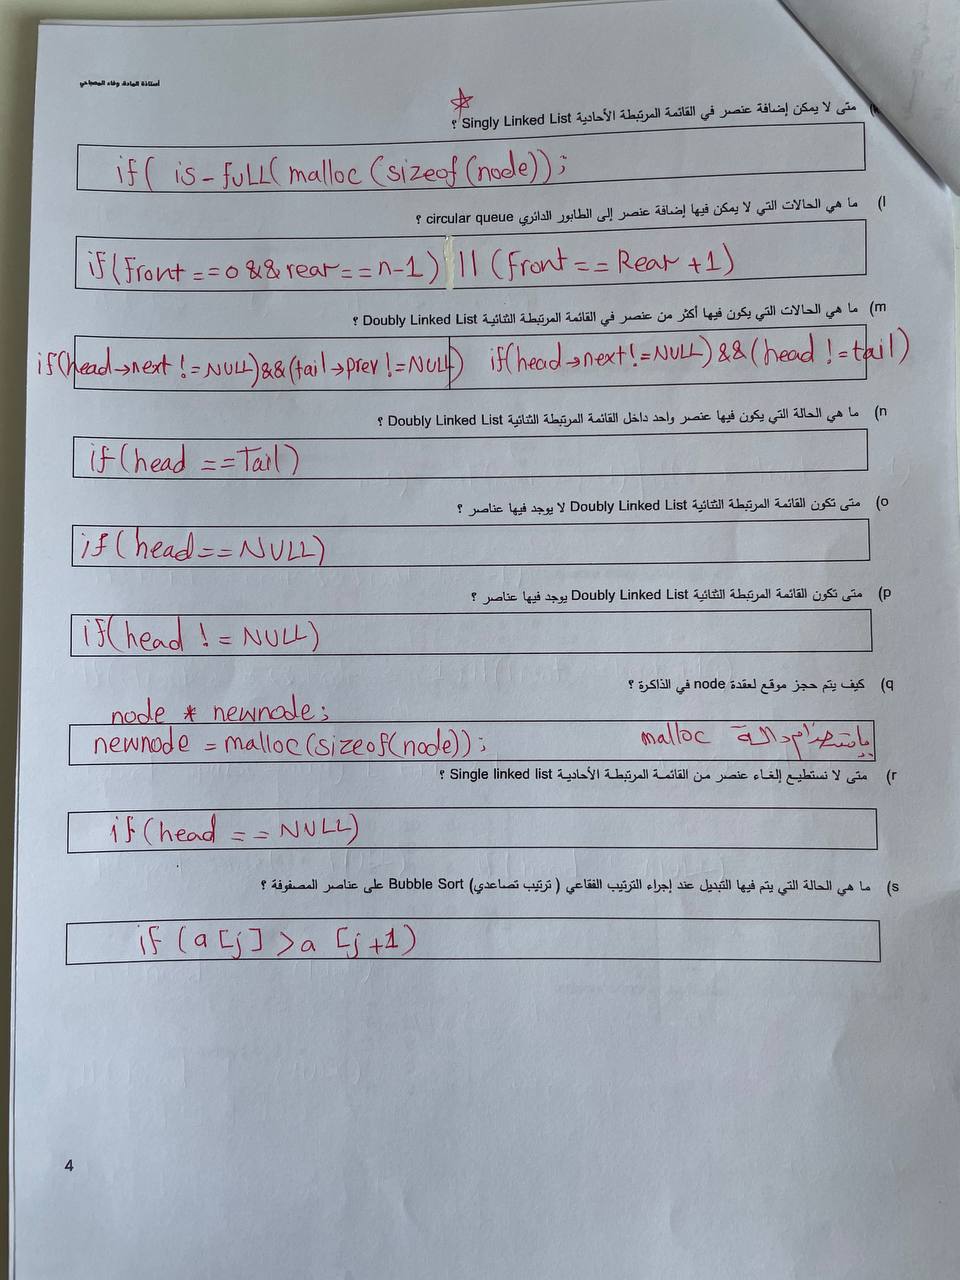 أستاذة المادة. وفاء المصباحي
متى لا يمكن إضافة عنصر في القائمة المرتبطة الأحادية Singly Linked List ؟
if( is-full(malloc(sizeof(node));
l) ما هي الحالات التي لا يمكن فيها إضافة عنصر إلى الطابور الدائري circular queue ؟
if(front==0&&rear==n-1) || (front==Rear+1)
m) ما هي الحالات التي يكون فيها أكثر من عنصر في القائمة المرتبطة الثنائية Doubly Linked List ؟
if(head→next!=NULL)&&(tail→prev!=NULL) if(head→next!=NULL)&&(head!=tail)
n) ما هي الحالة التي يكون فيها عنصر واحد داخل القائمة المرتبطة الثنائية Doubly Linked List ؟
if(head==Tail)
o) متى تكون القائمة المرتبطة الثنائية Doubly Linked List لا يوجد فيها عناصر ؟
if(head==NULL)
p) متى تكون القائمة المرتبطة الثنائية Doubly Linked List يوجد فيها عناصر ؟
if(head != NULL)
q) كيف يتم حجز موقع لعقدة node في الذاكرة ؟
node * newnode;
newnode = malloc(sizeof(node)); باستخدام دالة malloc
r) متى لا نستطيع إلغاء عنصر من القائمة المرتبطة الأحادية Single linked list ؟
if(head == NULL)
s) ما هي الحالة التي يتم فيها التبديل عند إجراء الترتيب الفقاعي ( ترتيب تصاعدي) Bubble Sort على عناصر المصفوفة ؟
if (a[j]>a[j+1)
4